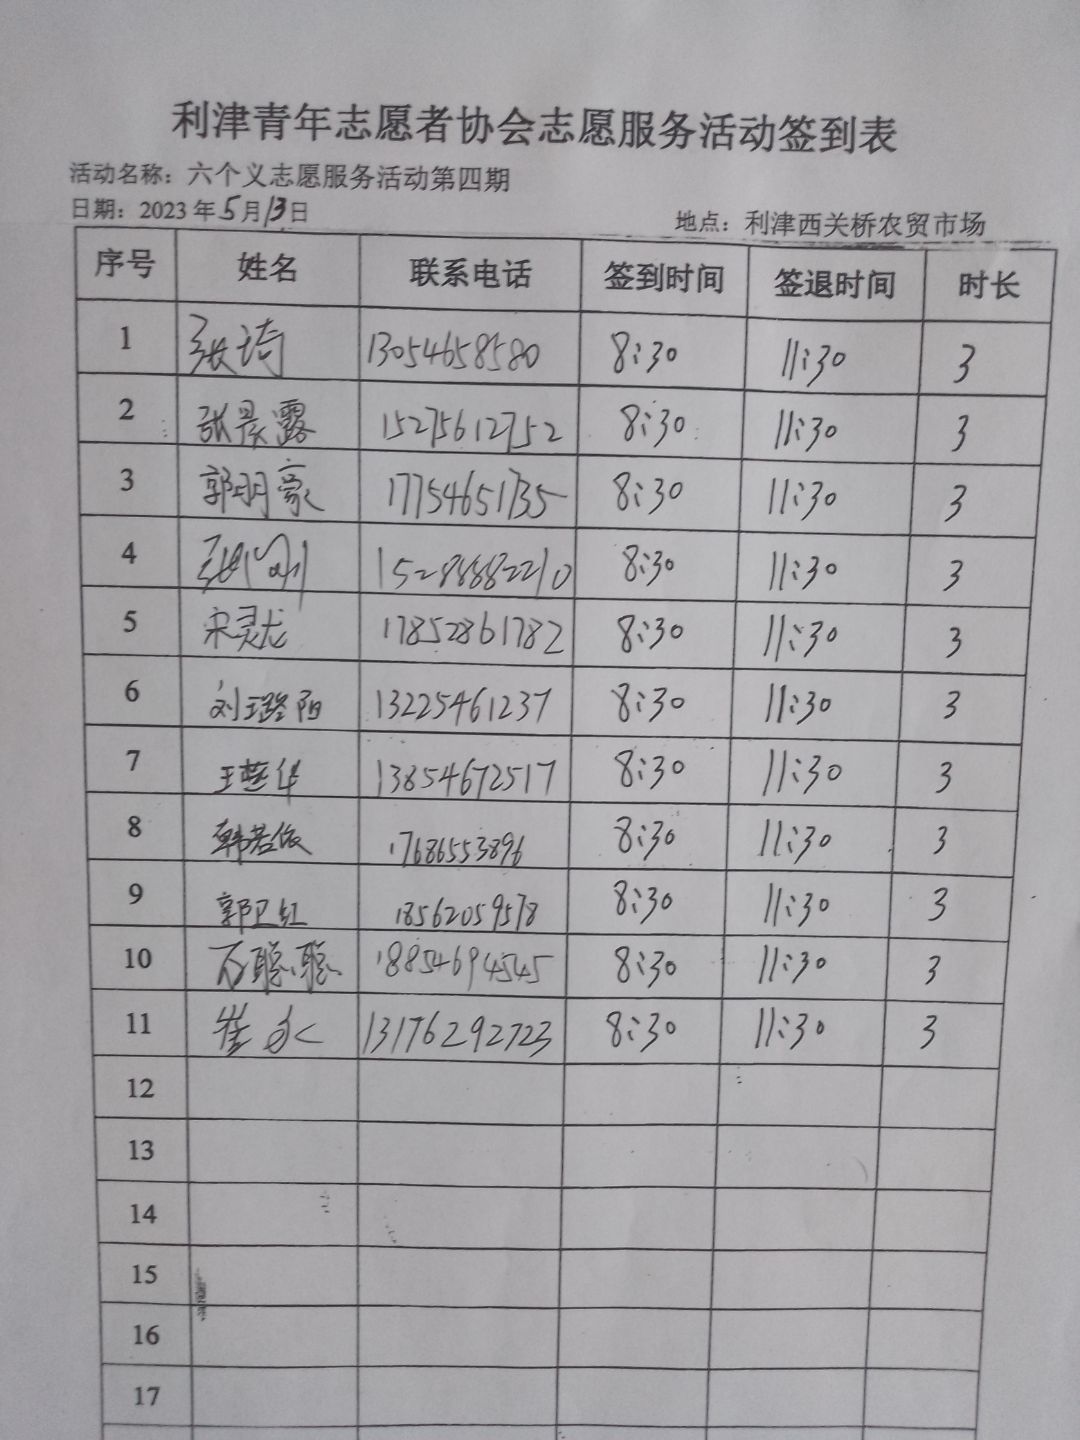 利津青年志愿者协会志愿服务活动签到表
活动名称：六个义志愿服务活动第四期
日期：2023年5月13日
地点：利津西关桥农贸市场
序号 姓名 联系电话 签到时间 签退时间 时长
1 张琦 13054658580 8:30 11:30 3
2 张晨露 15275612752 8:30 11:30 3
3 郭明豪 17754651735 8:30 11:30 3
4 张 15288882210 8:30 11:30 3
5 宋灵龙 17852861782 8:30 11:30 3
6 刘璐阳 13225461237 8:30 11:30 3
7 王燕华 13854672517 8:30 11:30 3
8 韩若依 17686553896 8:30 11:30 3
9 郭卫红 18562059578 8:30 11:30 3
10 万聪聪 18854694545 8:30 11:30 3
11 崔永 13176292723 8:30 11:30 3
12
13
14
15
16
17